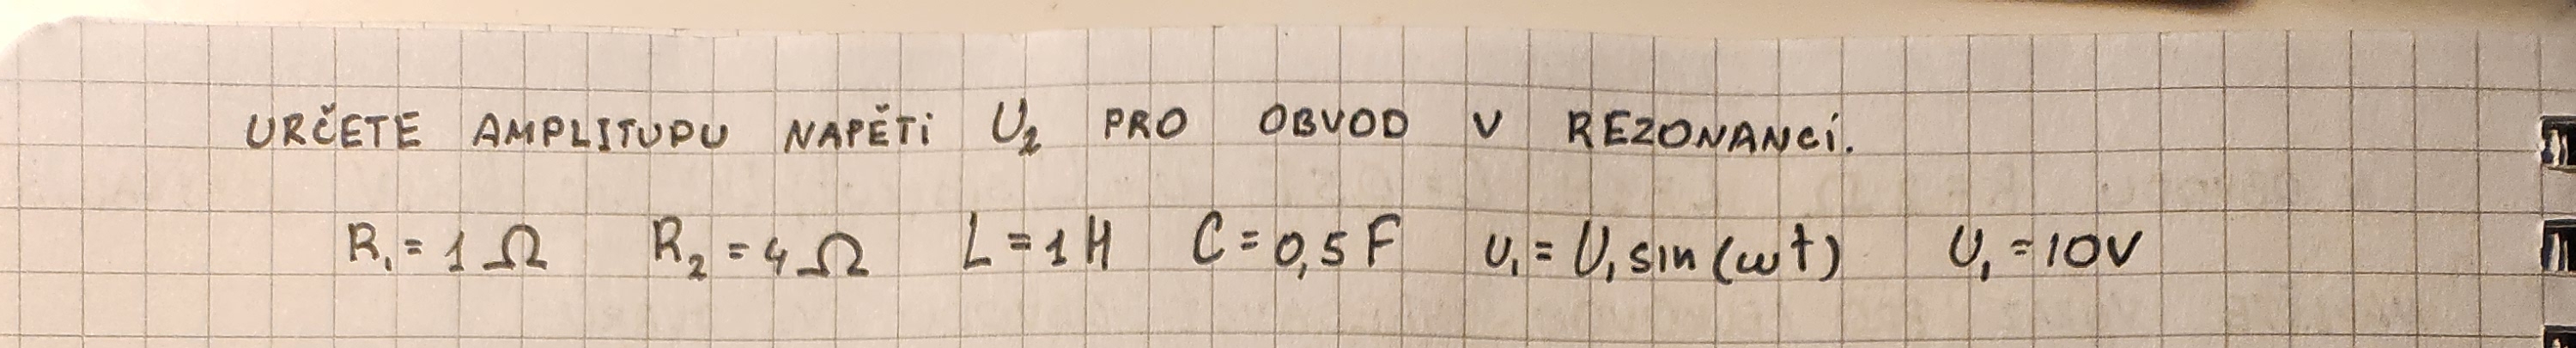 URČETE AMPLITUDU NAPĚTí U₂ PRO OBVOD V REZONANCí.
R₁=1Ω R₂=4Ω L=1H C=0,5F u₁=U₁sin(ωt) U₁=10V